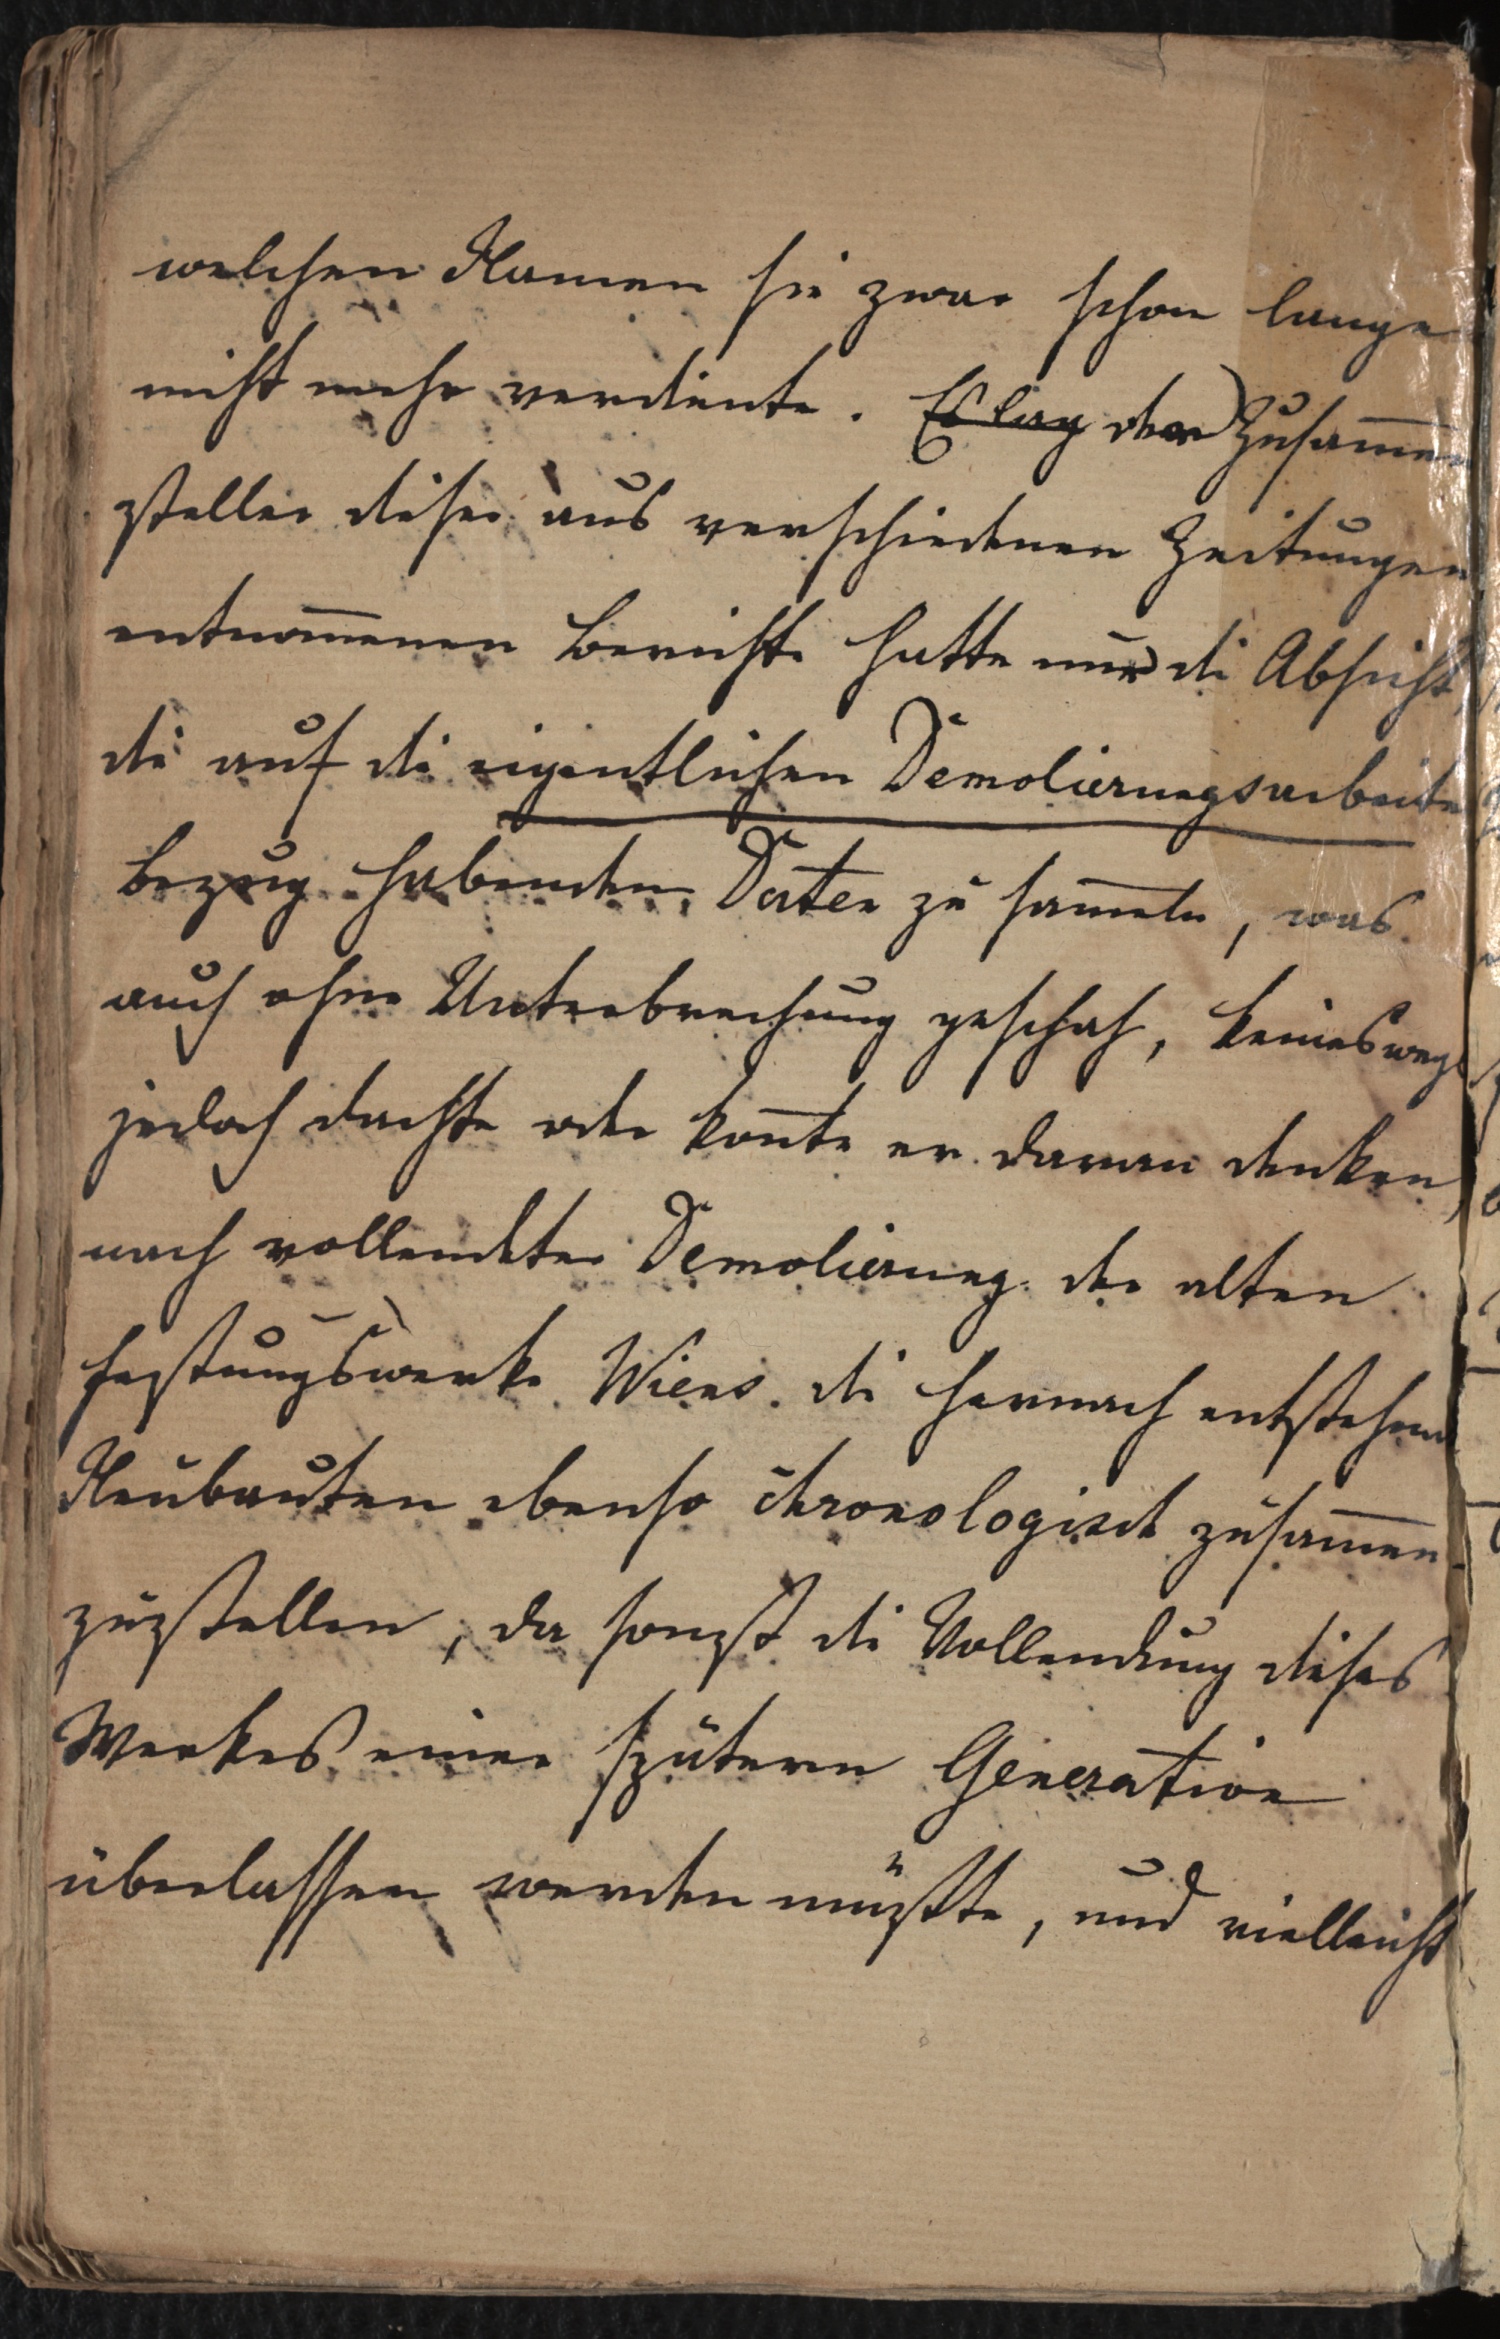 welchen Namen sie zwar schon lange
nicht mehr verdiente. Es lag der Zusam̅en
steller dieser aus verschiedenen Zeitungen
entnom̅enen Berichte hatte nur die Absicht,
die auf die eigentlichen Demolierungsarbeiten
Bezug habenden Daten zu sam̅eln, was
auch ohne Unterbrechung geschah, keineswegs
jedoch dachte oder kon̅te er daran denken,
nach vollendeter Demolierung der alten
Festungswerke Wiens die hernach entstehend
Neubauten ebenso chronologisch zusam̅en-
zustellen, da sonst die Vollendung dieses
Werkes einer spätern Generation
überlassen werden müßte, und vielleicht